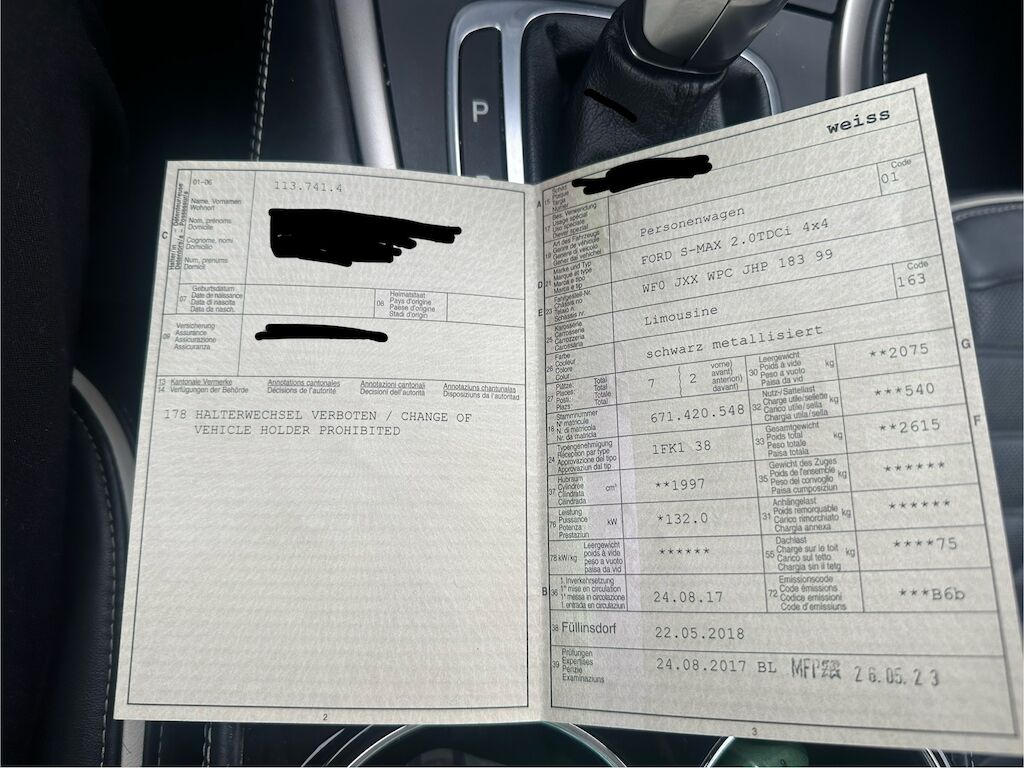 P
C
Halter/in
Détenteur/trice
01-06
113.741.4
Name, Vornamen
Wohnort
Nom, prénoms
Domicile
Cognome, nomi
Domicilio
Num, prenums
Domicil
07
Geburtsdatum
Date de naissance
Data di nascita
Data da nasch.
06
Heimatstaat
Pays d'origine
Paese d'origine
Stadi d'origin
09
Versicherung
Assurance
Assicurazione
Assicuranza
13
14
Kantonale Vermerke
Verfügungen der Behörde
Annotations cantonales
Décisions de l'autorité
Annotazioni cantonali
Decisioni dell'autorità
Annotaziuns chantunalas
Disposiziuns da l'autoritad
178 HALTERWECHSEL VERBOTEN / CHANGE OF
VEHICLE HOLDER PROHIBITED
2
weiss
A 15
Schild
Plaque
Targa
Numer
17
Bes. Verwendung
Usage spécial
Uso speciale
Diever spezial
19
Art des Fahrzeugs
Genre de véhicule
Genere di veicolo
Gener dal vehichel
Personenwagen
Code
01
D 21
Marke und Typ
Marque et type
Marca e tipo
Marca e tip
FORD S-MAX 2.0TDCi 4x4
E 23
Fahrgestell-Nr.
Châssis no
Telaio N.
Schassis nr.
WF0 JXX WPC JHP 183 99
25
Karosserie
Carrosserie
Carrozzeria
Carossaria
Limousine
Code
163
26
Farbe
Couleur
Colore
Colur
schwarz metallisiert
27
Plätze:
Places:
Posti:
Plazs:
Total
Total
Totale
Total
7
2
vorne)
avant)
anteriori)
davant)
30
Leergewicht
Poids à vide
Peso a vuoto
Paisa da vid
kg
**2075
G
18
Stammnummer
N° matricule
N. di matricola
Nr. da matricla
671.420.548
32
Nutz-/Sattellast
Charge utile/sellette
Carico utile/sella
Chargia utila/sella
kg
***540
24
Typengenehmigung
Réception par type
Approvazione del tipo
Approvaziun dal tip
1FK1 38
33
Gesamtgewicht
Poids total
Peso totale
Paisa totala
kg
**2615
F
37
Hubraum
Cylindrée
Cilindrata
Cilindrada
cm³
**1997
35
Gewicht des Zuges
Poids de l'ensemble
Peso del convoglio
Paisa cumposiziun
kg
******
76
Leistung
Puissance
Potenza
Prestaziun
kW
*132.0
31
Anhängelast
Poids remorquable
Carico rimorchiato
Chargia annexa
kg
******
78 kW/kg
Leergewicht
poids à vide
peso a vuoto
paisa da vid
******
55
Dachlast
Charge sur le toit
Carico sul tetto
Chargia sin il tetg
kg
****75
B 36
1. Inverkehrsetzung
1re mise en circulation
1a messa in circolazione
1. entrada en circulaziun
24.08.17
72
Emissionscode
Code émissions
Codice emissioni
Code d'emissiuns
***B6b
38 Füllinsdorf
22.05.2018
39
Prüfungen
Expertises
Perizie
Examinaziuns
24.08.2017 BL
26.05.23
3